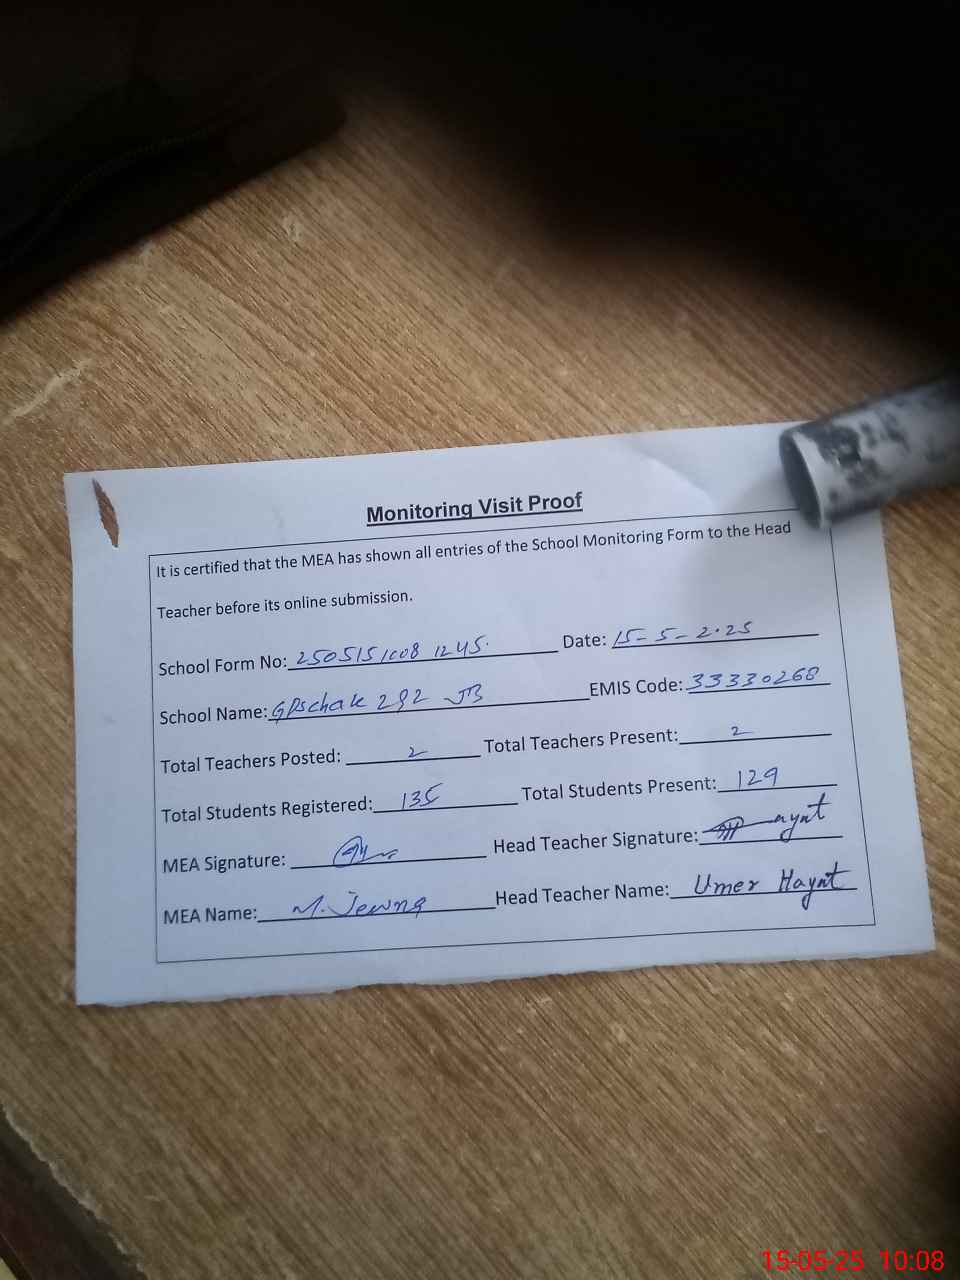 Monitoring Visit Proof
It is certified that the MEA has shown all entries of the School Monitoring Form to the Head
Teacher before its online submission.
School Form No: 2505151008 1245. Date: 15-5-2025
School Name: GPSchak 292 JB EMIS Code: 33330268
Total Teachers Posted: 2 Total Teachers Present: 2
Total Students Registered: 135 Total Students Present: 129
MEA Signature: Head Teacher Signature:
MEA Name: M. Head Teacher Name: Umer Hayat
15-05-25 10:08